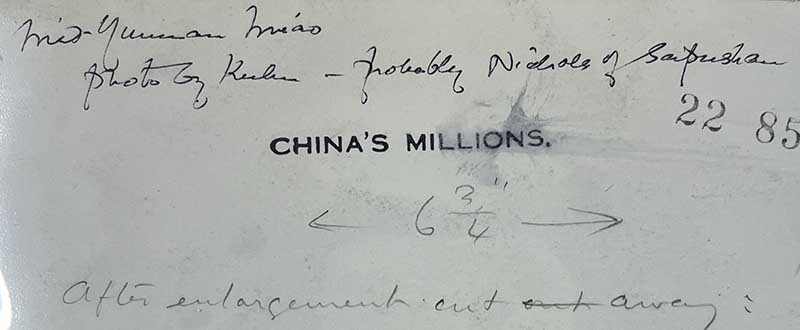 Mid-Yunnan Miao
photo by Kuhn - probably Nichols of Sapushan
22 85
CHINA'S MILLIONS.
6 3/4"
After enlargement cut out away: